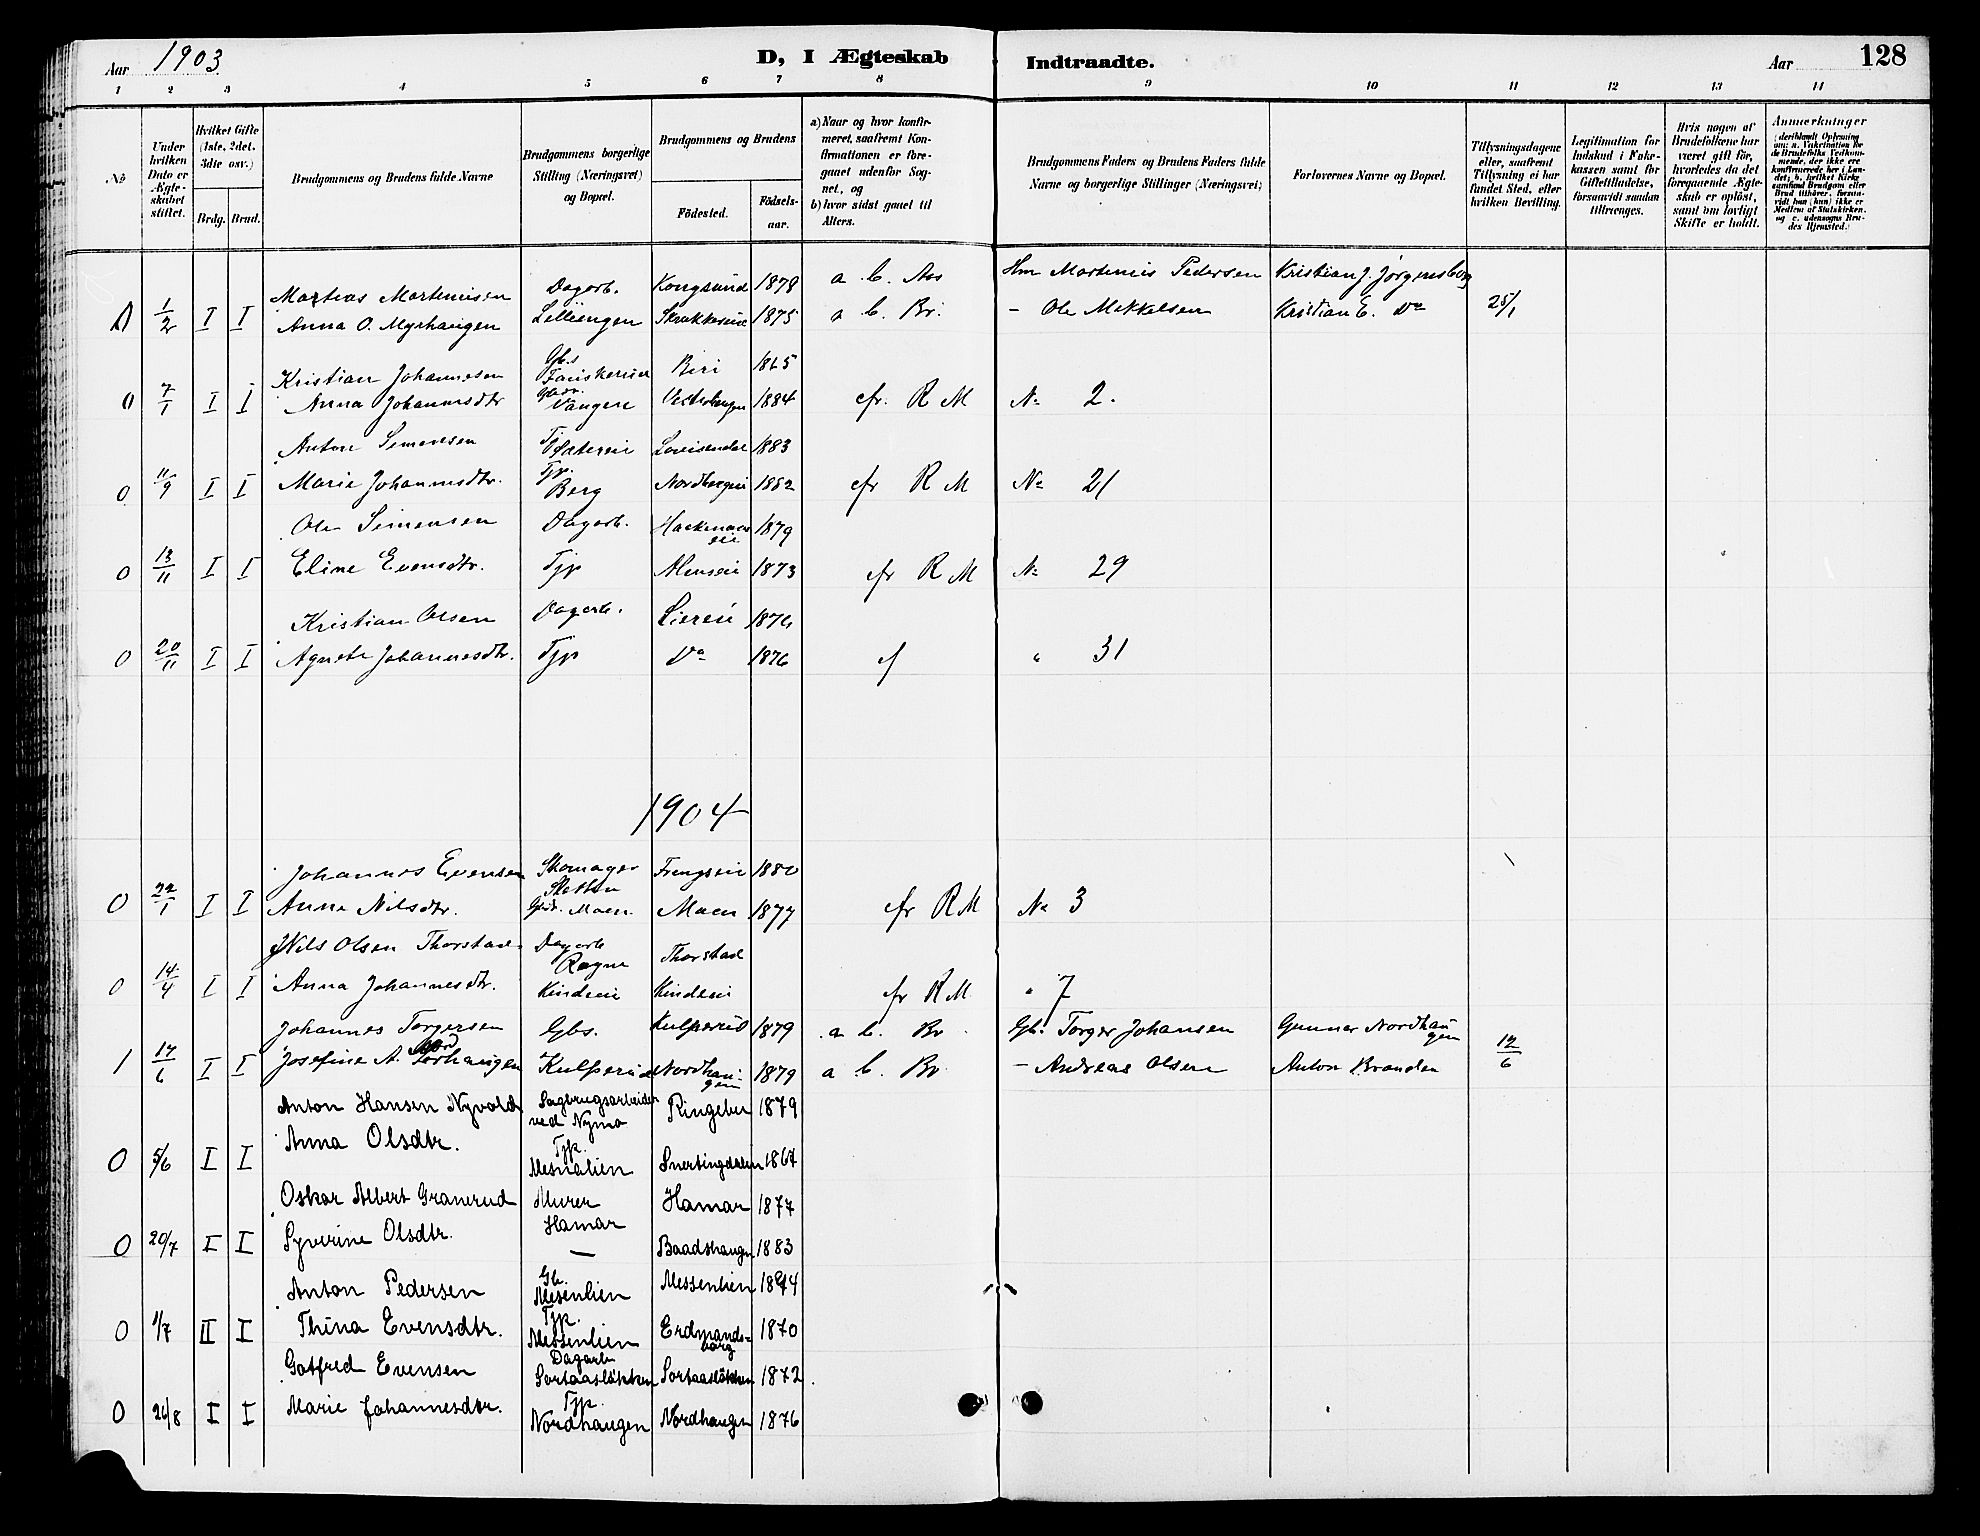 Aar 1903
D, I Ægteskab Indtraadte.
Aar
128
1 2 3 4 5 6 7 8 9 10 11 12 13 14
No
Under hvilken Dato er Ægteskabet stiftet.
Hvilket Gifte (1ste, 2det, 3die osv.)
Brdg. Brud.
Brudgommens og Brudens fulde Navne
Brudgommens borgerlige Stilling (Næringsvei) og Bopæl.
Brudgommens og Brudens
Fødested.
Fødselsaar.
a) Naar og hvor konfirmeret, saafremt Konfirmationen er foregaaet udenfor Sognet, og
b) hvor sidst gaaet til Alters.
Brudgommens Faders og Brudens Faders fulde Navne og borgerlige Stillinger (Næringsvei)
Forlovernes Navne og Bopæl.
Tillysningsdagene eller, saafremt Tillysning ei har fundet Sted, efter hvilken Bevilling.
Legitimation for Indskud i Enkekassen samt for Giftetilladelse, forsaavidt saadan tiltrænges.
Hvis nogen af Brudefolkene har været gift før, hvorledes da det foregaaende Ægteskab er opløst, samt om lovligt Skifte er holdt.
Anmerkninger
Martias Martinusen Dagarb. Kongsund 1878 a b. Aas Hm Martinus Pedersen Kristian J. Jørgensborg
1/2 I I Anna O. Myrhaugen Lilleengen 1875 a b. Br. - Ole Mikkelsen Kristian E. Do 25/1
Kristian Johannesen Gbs. Biri 1865
0 7/1 I I Anna Johannesdtr Vangen 1884 cfr. R M No 2.
Anton Simensen Louisendal 1883
0 11/9 I I Marie Johannesdtr. Tjp. Berg 1882 cfr R M No 21
Ole Simensen Dagarb. 1879
0 13/11 I I Eline Evensdtr. Tjp 1873 cfr R M No 29
Kristian Olsen Dagarb. Liereie 1874
0 20/11 I I Agnete Johannesdtr. Tjp Do 1876 cf " 31
1904
Johannes Evensen Skomager Sletten 1880
0 22/1 I I Anna Nilsdtr. Moen Moen 1877 cfr R M No 3
Nils Olsen Thorstad Dagarb Rogne Thorstad
0 14/4 I I Anna Johannesdtr. Kindseie Kindseie cfr R M. " 7
Johannes Torgersen Gbs. Kulperud 1879 a b. Br. Gb. Torger Johansen Gunnar Nordhaugen
1 17/6 I I Josefine A. Nordhaugen Kulperud Nordhaugen 1879 a b. Br. - Andreas Olsen Anton Branden 12/6
Anton Hansen Nyvold Sagbrugsarbeider ved Nymo Ringebu 1879
0 5/6 I I Anna Olsdtr. Tjp. Mesnalien Snertingdalen 1867
Oskar Albert Granerud Murer Hamar Hamar 1877
0 20/7 I I Syverine Olsdtr. — Baadshaugen 1883
Anton Pedersen Gb. Mesenlien Messenlien 1844
0 1/7 II I Thina Evensdtr. Tjp. Messenlien Erdmandsborg 1870
Gotfred Evensen Dagarb Sortaasløkken Sortaasløkken 1872
0 26/8 I I Marie Johannesdtr. Tjp. Nordhaugen Nordhaugen 1876